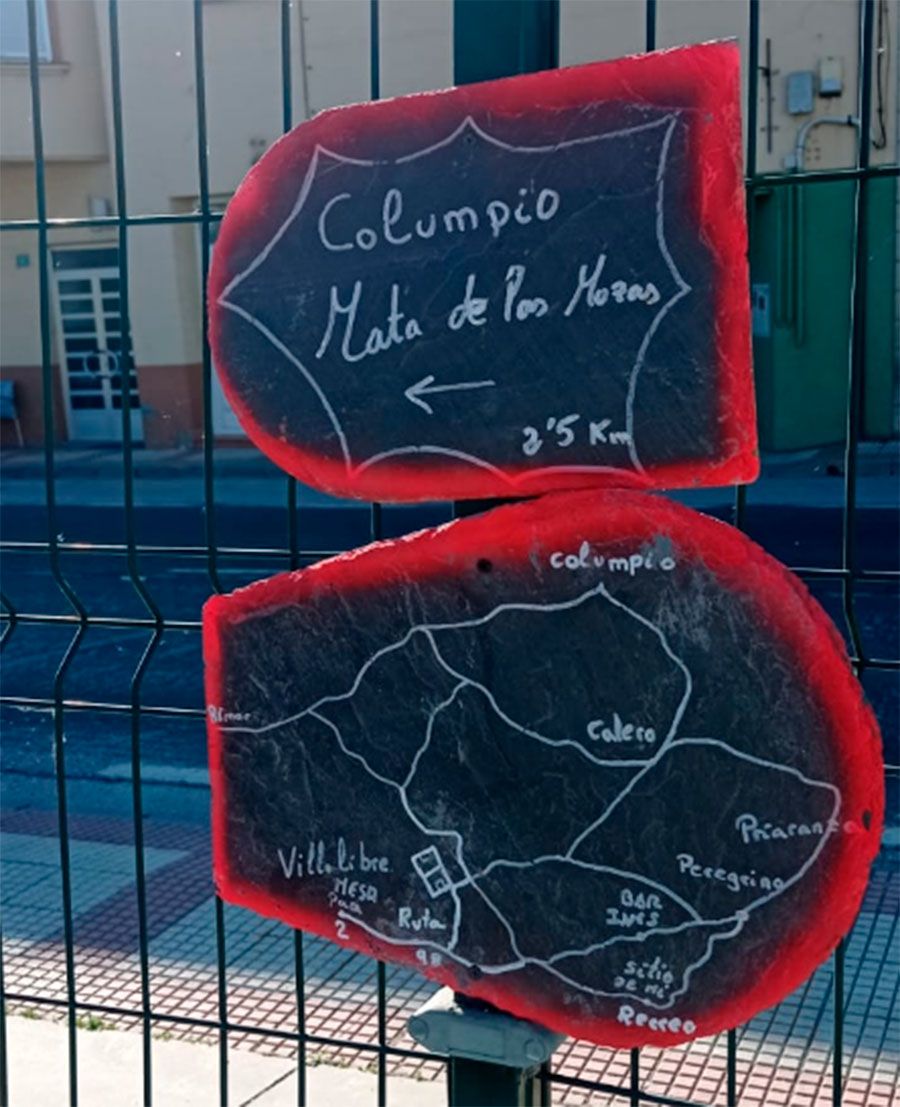 Columpio
Mata de las Mozas
2'5 Km
columpio
Calero
Priaranza
Villalibre
Peregrino
MESA
PaR
BAR
INES
Ruta
2
sitio
DE Mi
Recreo